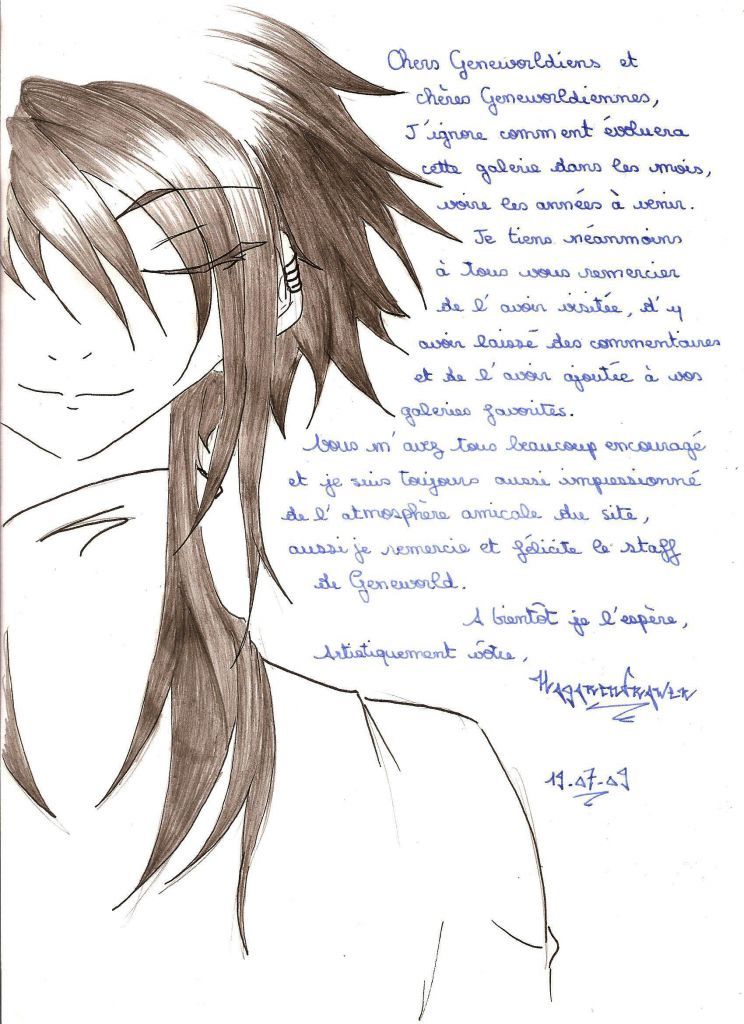 Chers Geneworldiens et
chères Geneworldiennes,
J'ignore comment évoluera
cette galerie dans les mois,
voire les années à venir.
Je tiens néanmoins
à tous vous remercier
de l'avoir visitée, d'y
avoir laissé des commentaires
et de l'avoir ajoutée à vos
galeries favorites.
Vous m'avez tous beaucoup encouragé
et je suis toujours aussi impressionné
de l'atmosphère amicale du site,
aussi je remercie et félicite le staff
de Geneworld.
A bientôt je l'espère,
Artistiquement vôtre,